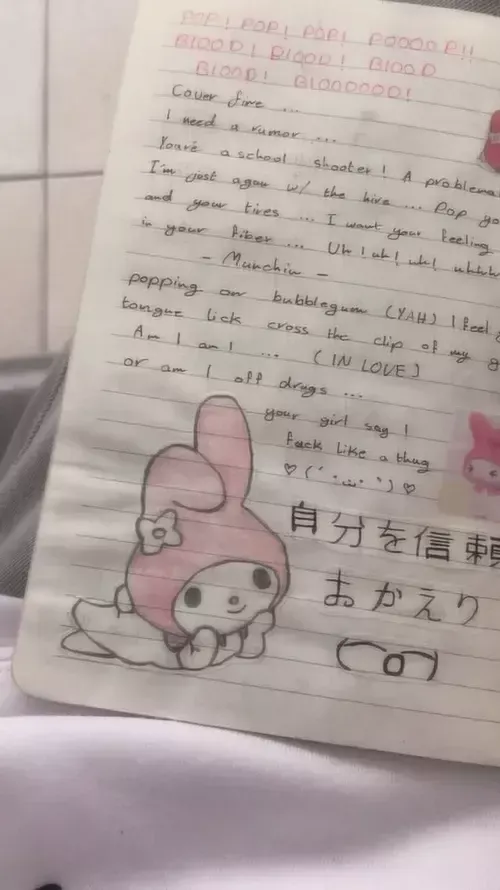 POP! POP! POP! POOOOP!!
BlOOD! BlOOD! BlOOD
BlOOD! BlOOOOOD!
Cover fire ...
I need a rumor ...
You're a school shooter! A
I'm just again w/ the hive ... Pop
and your tires ... I want your feeling
in your fiber ... Uh! uh! uh!
- Munchin -
popping on bubblegum (YAH) I feel
tongue lick cross the clip of my
Am I am I ... (IN LOVE)
or am I off drugs ...
your girl say I
fuck like a thug
自分を信頼
おかえり